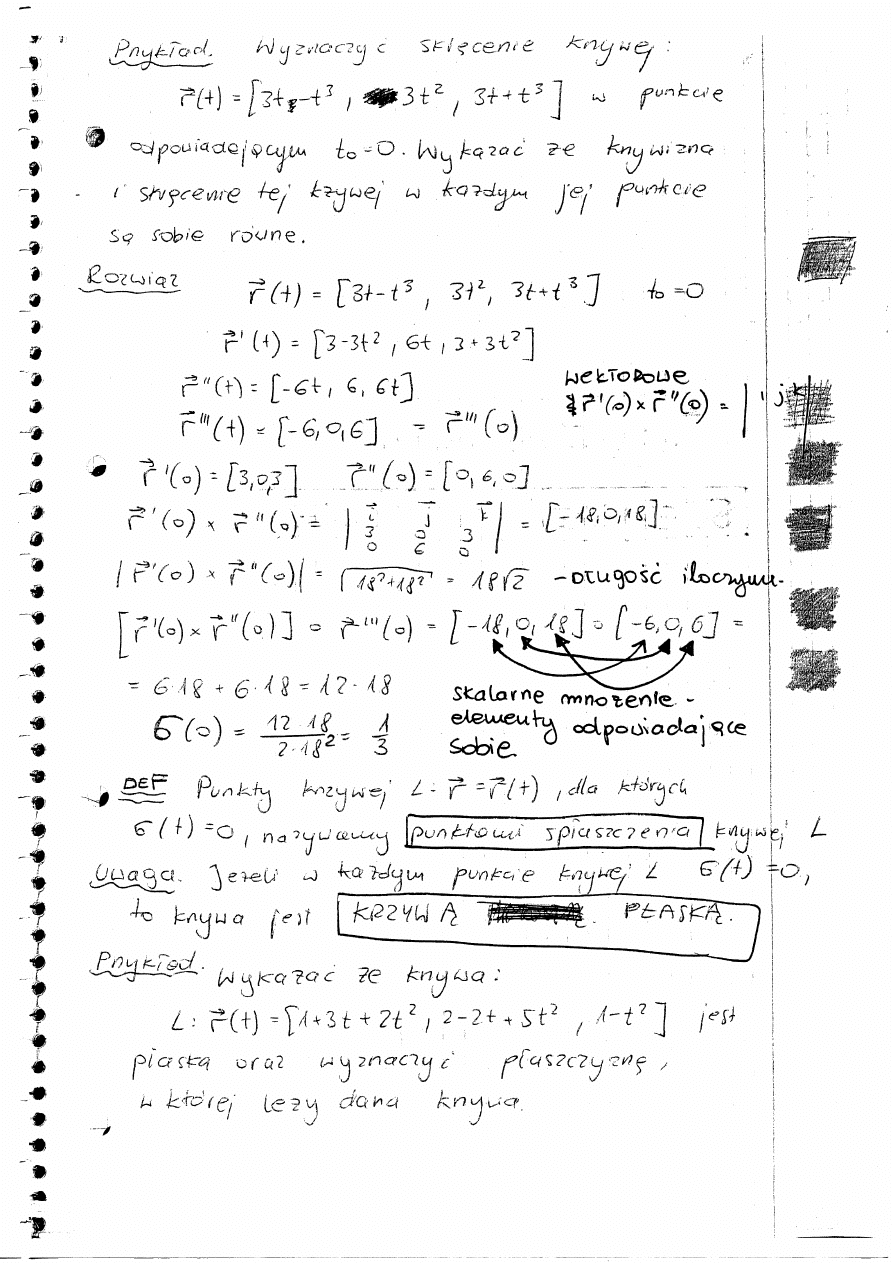 Przykład. Wyznaczyć skręcenie krzywej:
r⃗(t) = [3t-t³, 3t², 3t+t³] w punkcie
odpowiadającym to=0. Wykazać że krzywizna
i skręcenie tej krzywej w każdym jej punkcie
są sobie równe.
Rozwiąz r⃗(t) = [3t-t³, 3t², 3t+t³] to=0
r⃗'(t) = [3-3t², 6t, 3+3t²]
r⃗''(t) = [-6t, 6, 6t]
wektorowe
r⃗'(0) × r⃗''(0) = | i j k
r⃗'''(t) = [-6,0,6] = r⃗'''(0)
r⃗'(0) = [3,0,3] r⃗''(0) = [0,6,0]
r⃗'(0) × r⃗''(0) = | i⃗ j⃗ k⃗ |
3 0 3
0 6 0
= [-18,0,18]
|r⃗'(0) × r⃗''(0)| = √(18²+18²) = 18√2 - długość iloczynu.
[r⃗'(0) × r⃗''(0)] ∘ r⃗'''(0) = [-18,0,18] ∘ [-6,0,6] =
= 6·18 + 6·18 = 12·18
skalarne mnożenie -
elementy odpowiadające
sobie.
σ(0) = 12·18 / 2·18² = 1/3
DEF Punkty krzywej L: r⃗ = r⃗(t), dla których
σ(t) = 0, nazywamy punktami spłaszczenia krzywej L
Uwaga. Jeżeli w każdym punkcie krzywej L σ(t) = 0,
to krzywa jest KRZYWĄ PŁASKĄ.
Przykład. Wykazać że krzywa:
L: r⃗(t) = [1+3t+2t², 2-2t+5t², 1-t²] jest
płaska oraz wyznaczyć płaszczyznę,
w której leży dana krzywa.